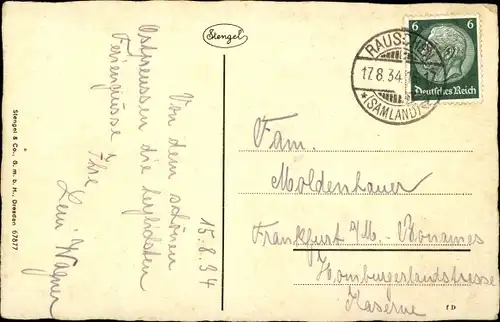 Stengel
Stengel & Co., G. m. b. H., Dresden 67877
15.8.34
Von dem schönen
Ostpreussen die herzlichsten
Feriengrüsse Ihre
Leni Wagner
6
Deutsches Reich
RAUSCHEN
17.8.34.
(SAMLAND)
Fam.
Moldenhauer
Frankfurt a/M.-Bonames
Homburgerlandstrasse
Kaserne
fD